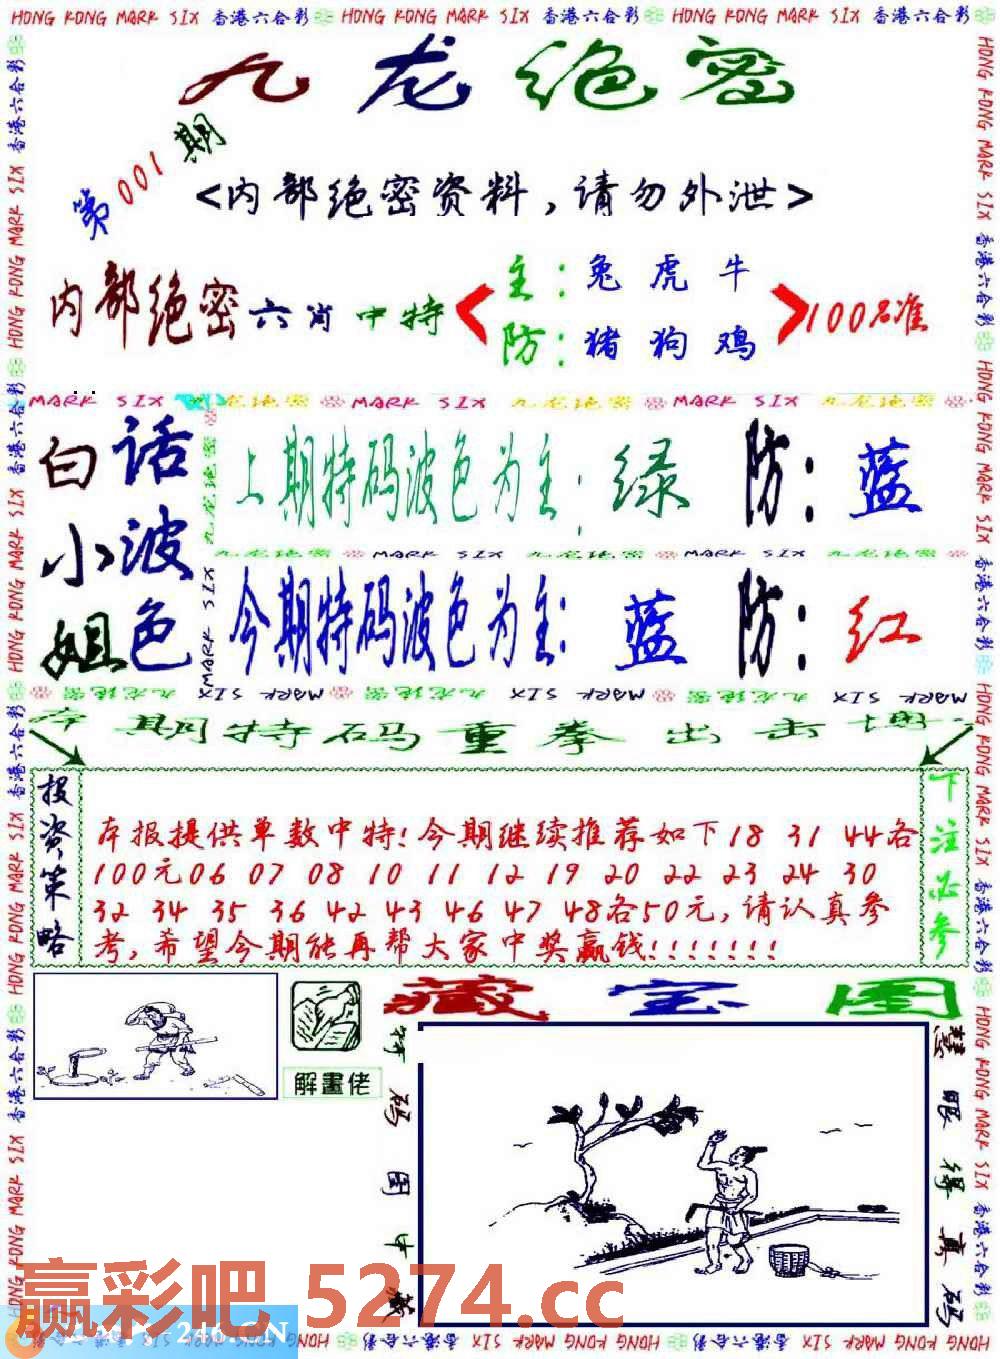 HONG KONG MARK SIX 香港六合彩 HONG KONG MARK SIX 香港六合彩 HONG KONG MARK SIX 香港六合彩
九龙绝密
第001期
<内部绝密资料,请勿外泄>
内部绝密六肖中特
主:兔虎牛
防:猪狗鸡
100%准
MARK SIX 九龙绝密 MARK SIX 九龙绝密 MARK SIX 九龙绝密
白小姐
话波色
上期特码波色为主:绿 防:蓝
九龙绝密 MARK SIX 九龙绝密 MARK SIX 九龙绝密
今期特码波色为主:蓝 防:红
本期特码重拳出击
投资策略
本报提供单数中特!今期继续推荐如下18 31 44各
100元06 07 08 10 11 12 19 20 22 23 24 30
32 34 35 36 42 43 46 47 48各50元,请认真参
考,希望今期能再帮大家中奖赢钱!!!!!!!
下注必参
藏宝图
解畫佬
特码图中藏
慧眼得真码
赢彩吧 5274.cc
246.CN